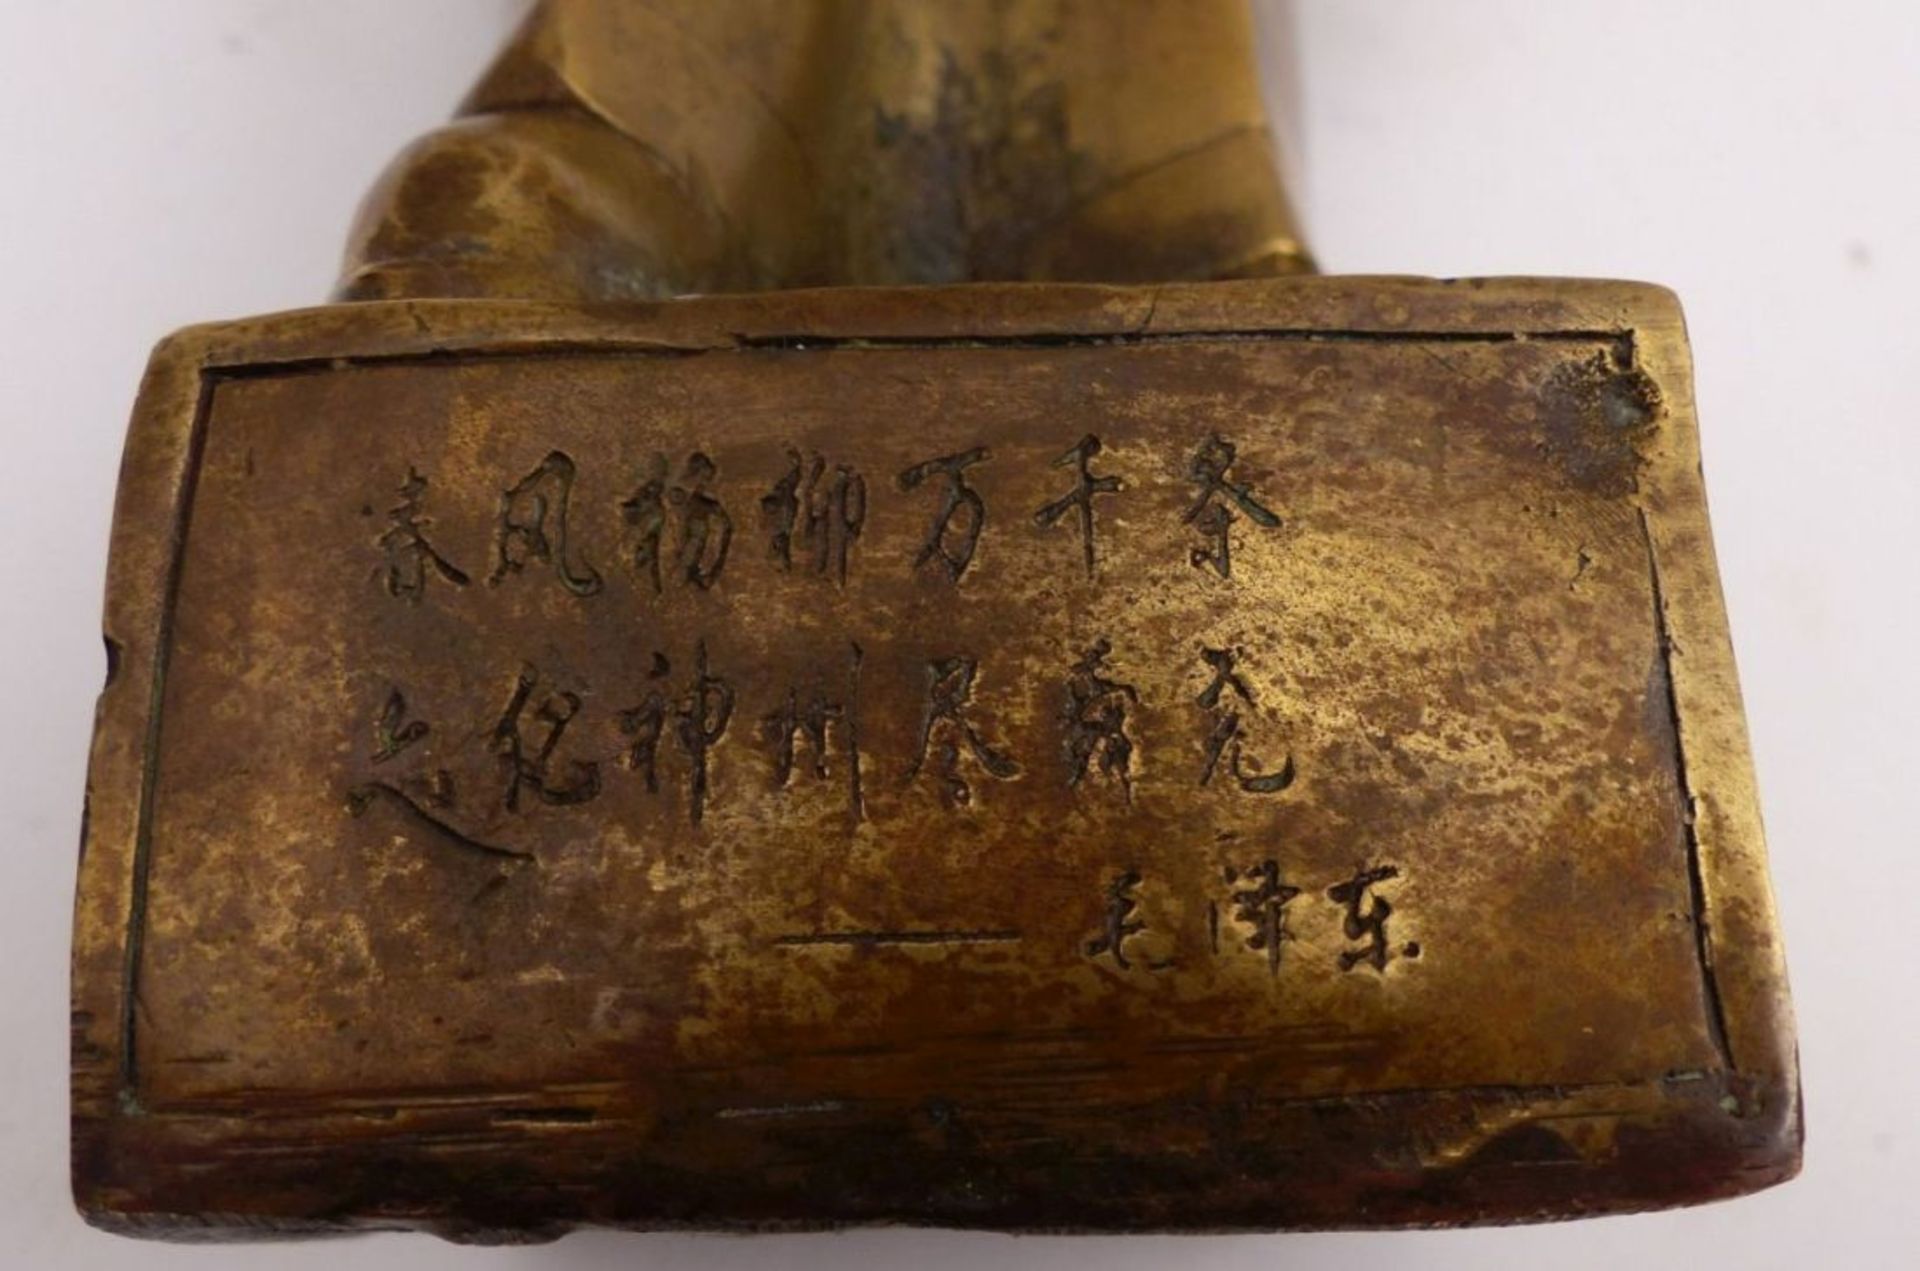 春风杨柳万千条
六亿神州尽舜尧
—— 毛泽东